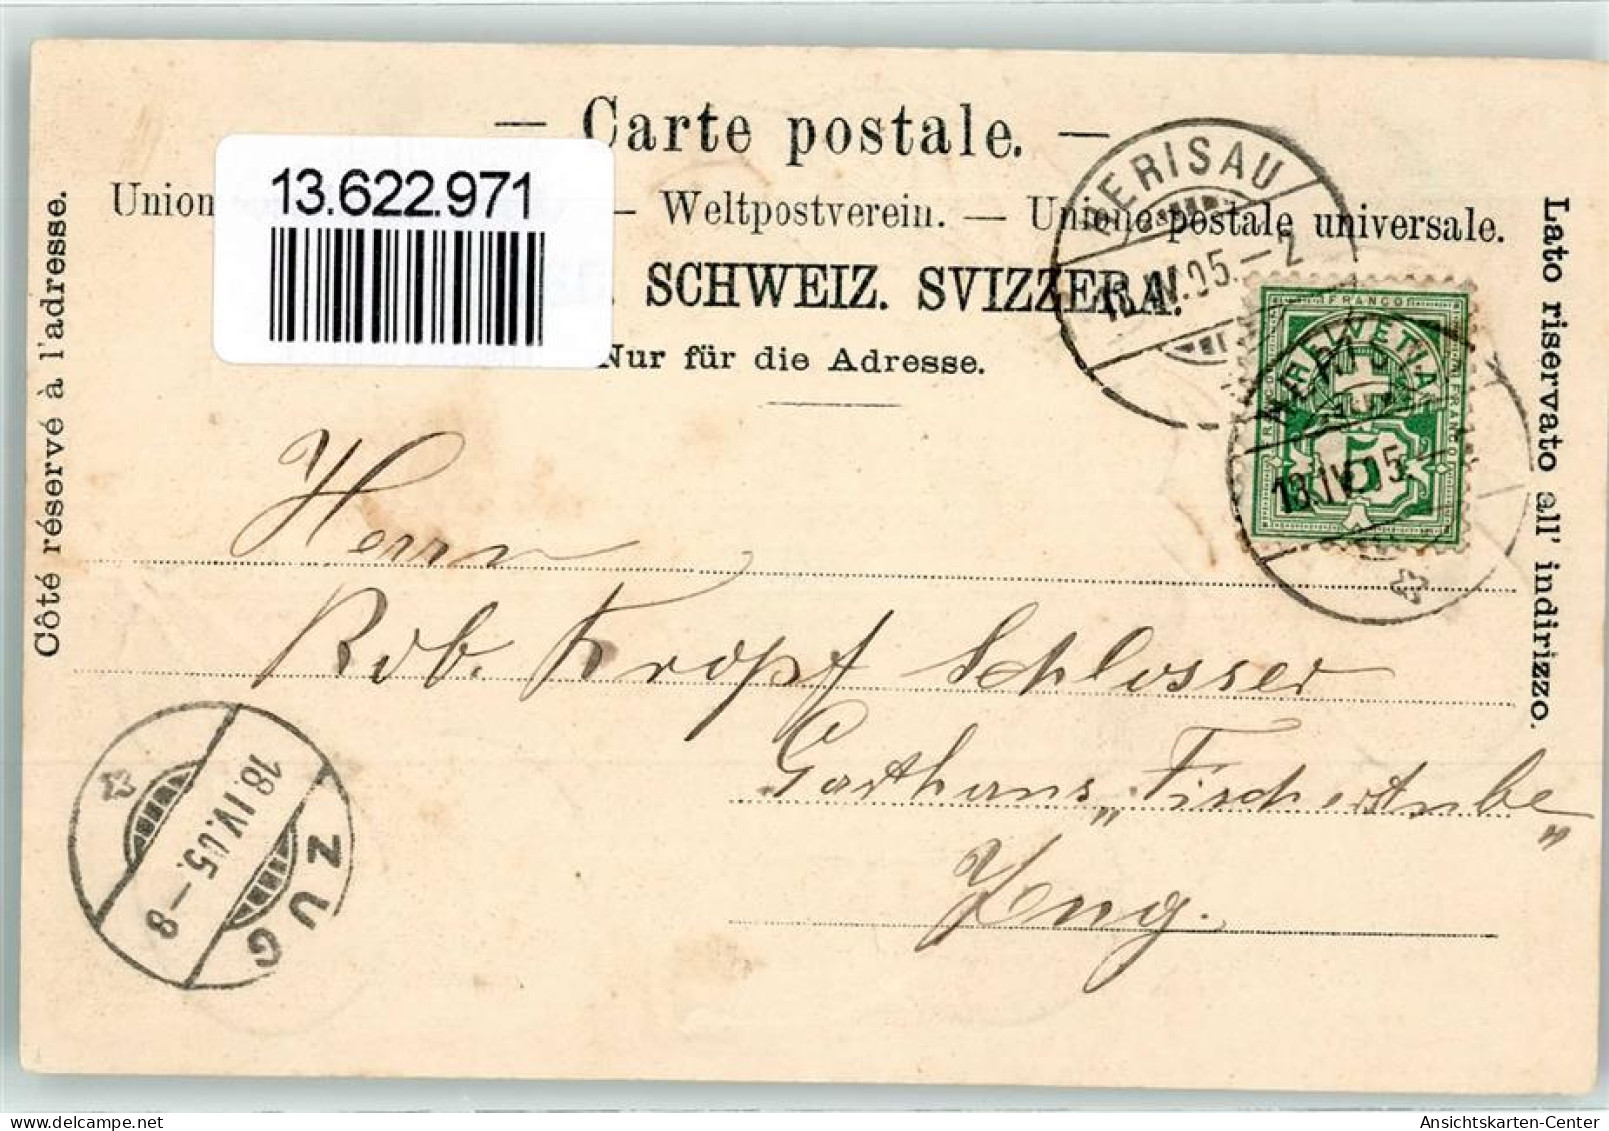 — Carte postale. —
Union — Weltpostverein. — Unione postale universale.
SCHWEIZ. SVIZZERA.
Nur für die Adresse.
13.622.971
Côté réservé à l'adresse.
Lato riservato all' indirizzo.
HERISAU
18.IV.05.–2
FRANCO
HELVETIA
5
HERISAU
18.IV.05.–
Herrn
Rob. Kropf Schlosser
Gasthaus „Fischerstube"
Zug.
ZUG
18.IV.05.–8
Ansichtskarten-Center